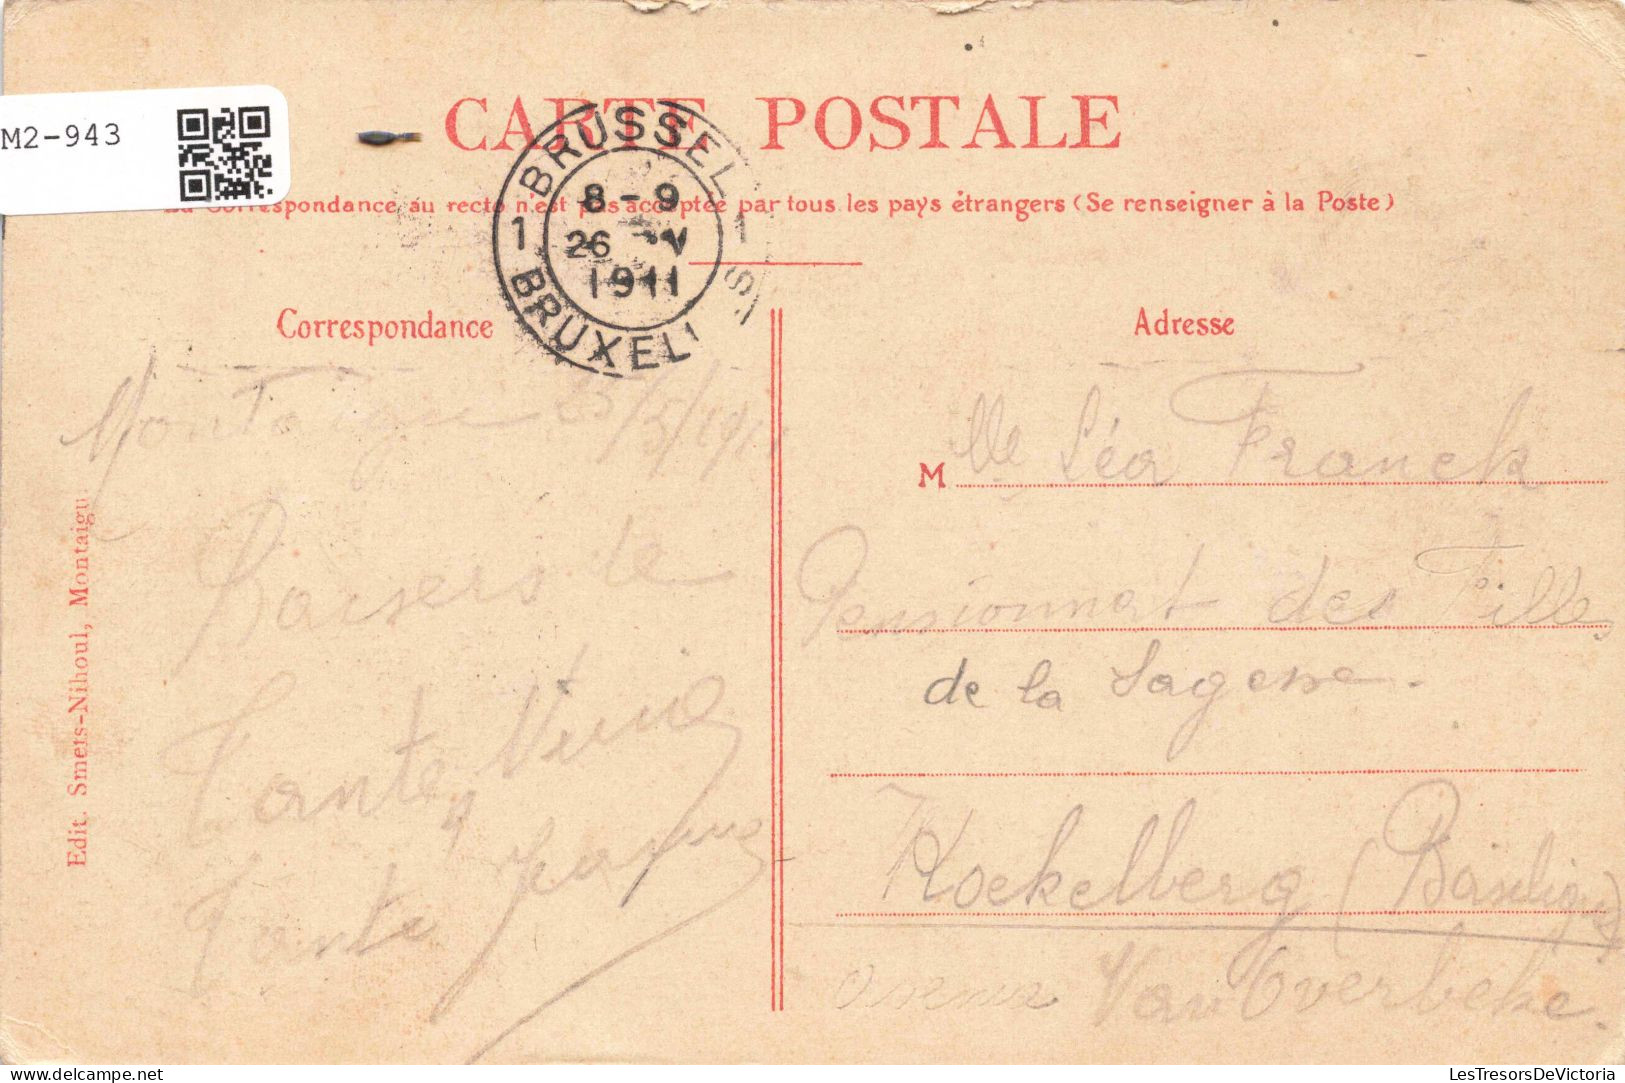 M2-943
CARTE POSTALE
La correspondance au recto n'est pas acceptée par tous les pays étrangers (Se renseigner à la Poste)
BRUSSEL
1 8-9 1
26 V
1911
BRUXEL S
Correspondance
Adresse
Montaigu 25/5/1911
Baisers de
Tante
Tante
Edit. Smets-Nihoul, Montaigu
M lle Léa Franck
Pensionnat des Filles
de la Sagesse.
Koekelberg (Basilique)
Avenue Van Overbeke.
LesTresorsDeVictoria
delcampe.net